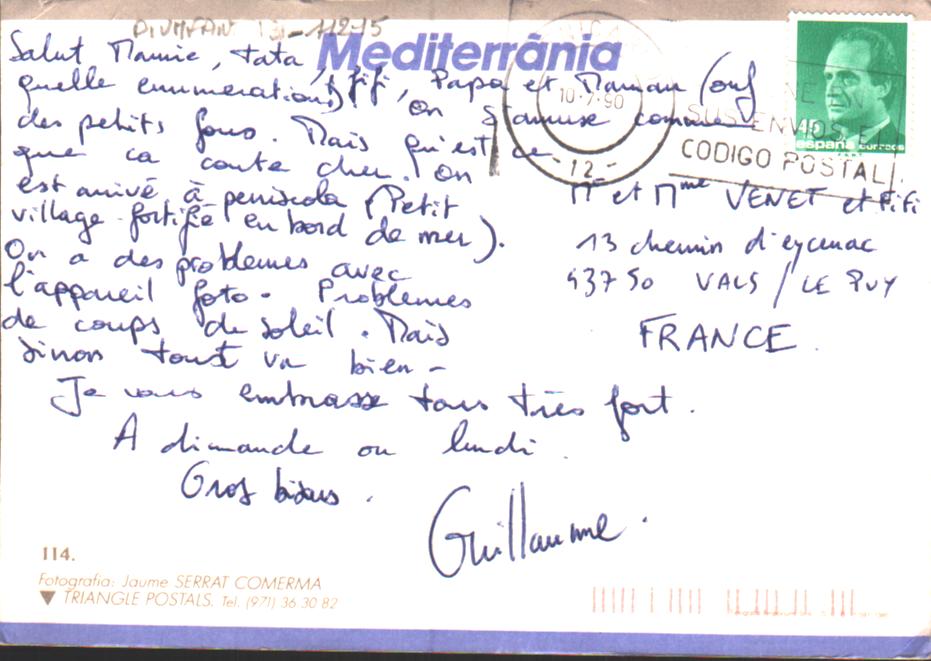 Mediterrània
Salut Mamie, tata,
quelle enumeration) fifi, Papa et Maman (ouf
des petits fous. Mais qu'est ce on s'amuse comme
que ca coute cher. On
est arrivé à peniscola (Petit
village fortifié en bord de mer).
On a des problemes avec
l'appareil foto. Problemes
de coups de soleil. Mais
sinon tout va bien -
Je vous embrasse tous très fort.
A dimanche ou lundi.
Gros bisous.
Guillaume.
10-7-90
-12-
SUS ENVIOS EL
CODIGO POSTAL
45
españa correos
Mr et Mme VENET et Fifi
13 chemin d'eycenac
43750 VALS / LE PUY
FRANCE.
114.
Fotografia: Jaume SERRAT COMERMA
▼ TRIANGLE POSTALS. Tel. (971) 36 30 82